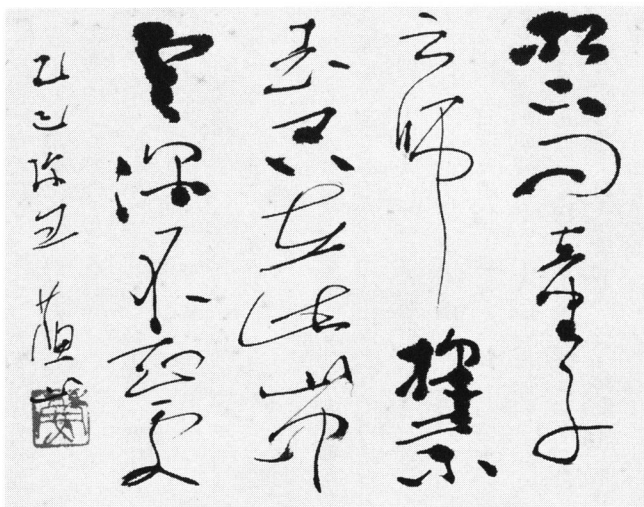 松下問童子
言師採藥
去只在此山中
雲深不知處
乙巳弥生